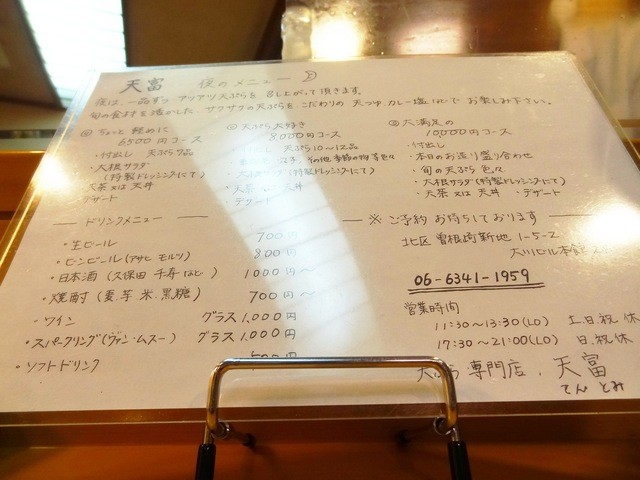 天富 夜のメニュー
夜は、一品ずつ アツアツ天ぷらを 召し上がって頂きます。
旬の食材を活かした サクサクの天ぷらを、こだわりの 天つゆ、カレー塩 などで お楽しみ下さい。
◎ ちょっと 軽めに
6500円コース
・付出し 天ぷら7品
・大根サラダ
(特製ドレッシングにて)
天茶 又は 天丼
・デザート
◎ 天ぷら大好き
8,000円コース
天ぷら10〜12品
その他 季節の物等色々
(特製ドレッシングにて)
・天茶 天丼
・デザート
◎ 大満足の
10,000円コース
・付出し
・本日のお造り盛り合わせ
・旬の天ぷら 色々
・大根サラダ(特製ドレッシングにて)
・天茶 又は 天丼 ・デザート
ドリンクメニュー
・生ビール 700円
・ビンビール(アサヒ モルツ) 800円
・日本酒(久保田 千寿 など) 1000円〜
・焼酎(麦 芋 米 黒糖) 700円〜
・ワイン グラス 1,000円
・スパークリング(ヴァン・ムスー) グラス 1,000円
・ソフトドリンク 500円
※ ご予約 お待ちしております
北区 曽根崎新地 1-5-2
大川ビル本館
06-6341-1959
営業時間
11:30〜13:30(LO) 土.日.祝 休
17:30〜21:00(LO) 日.祝 休
天ぷら 専門店、天富
てん とみ